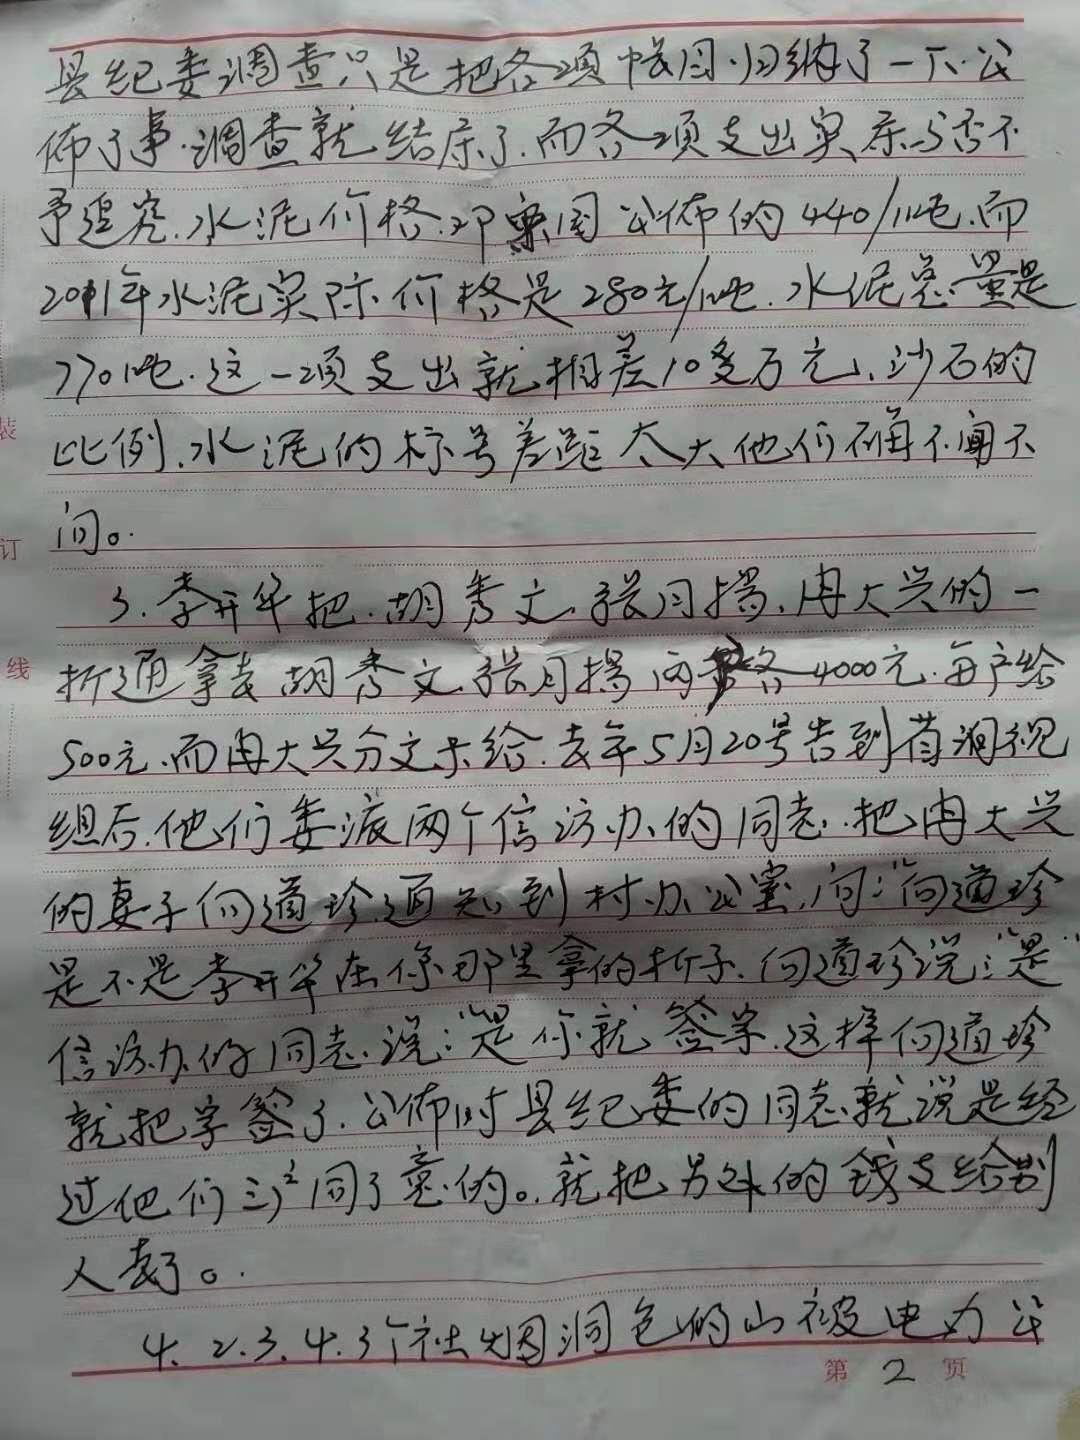 县纪委调查只是把各项帐目归纳了一下.公
佈了事.调查就结束了.而各项支出实际与否不
予追究.水泥价格.公佈的440/吨.而
2011年水泥实际价格是280元/吨.水泥总量是
770吨.这一项支出就相差10多万元、沙石的
比例.水泥的标号差距太大他们不闻不
问。
3.李开华把.胡秀文.张月揭.冉大兴的一
折通拿去胡秀文.张月揭两户各4000元.每户给
500元.而冉大兴分文未给.去年5月20号告到巡视
组后.他们委派两个信访办的同志.把冉大兴
的妻子向道珍通知到村办公室.问:“向道珍
是不是李开华在你那里拿的折子.向道珍说:“是”
信访办的同志.说:“是你就签字.这样向道珍
就把字签了.公佈时县纪委的同志就说是经
过他们三户同了意的。就把另外的钱支给别
人去了。
4.2.3.4.3个社烟洞包的山被电力公
装
订
线
第 2 页